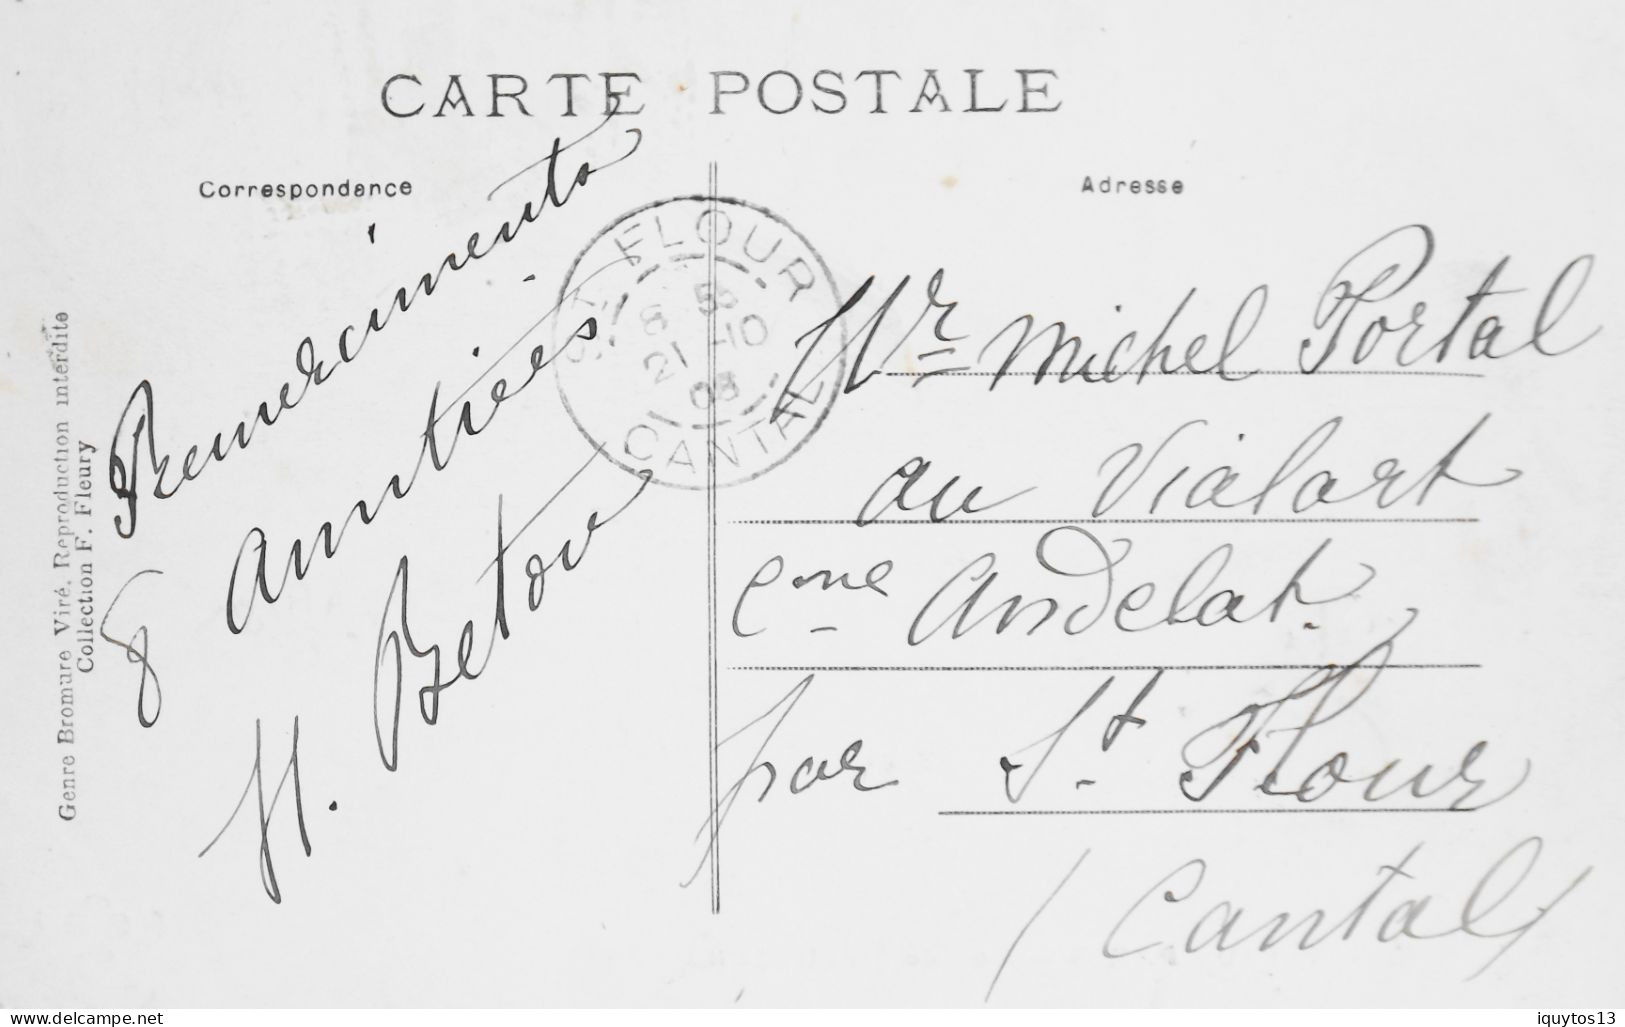 CARTE POSTALE
Correspondance
Remerciments
& Amitiées
H. Betou
Genre Bromure Viré. Reproduction interdite
Collection F. Fleury
ST FLOUR
8 55
21 -10
08
CANTAL
Adresse
Mr Michel Portal
au Vialard
Cme Andelat.
par St. Flour
(Cantal)
www.delcampe.net
iquytos13